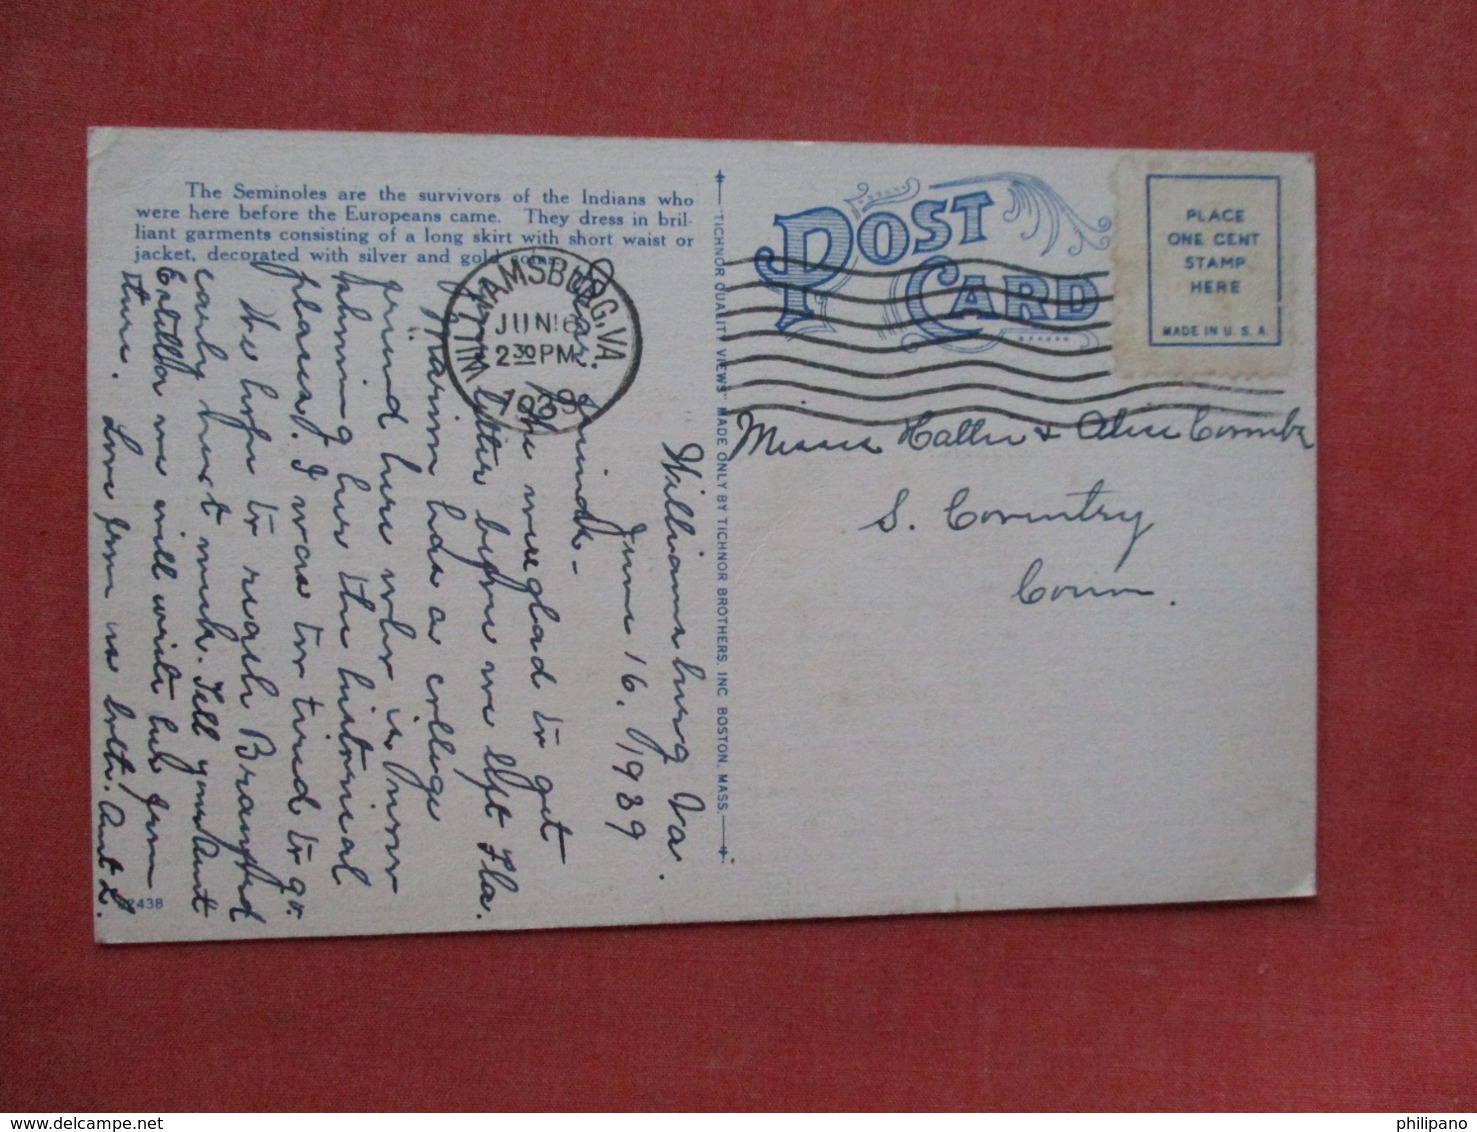 The Seminoles are the survivors of the Indians who
were here before the Europeans came. They dress in bril-
liant garments consisting of a long skirt with short waist or
jacket, decorated with silver and gold coins.
POST CARD
PLACE
ONE CENT
STAMP
HERE
MADE IN U.S.A.
WILLIAMSBURG, VA.
JUN 16
2 30 PM
1939
"TICHNOR QUALITY VIEWS" MADE ONLY BY TICHNOR BROTHERS, INC BOSTON, MASS.
Misses Hattie & Alice Coombs
S. Coventry
Conn.
Williamsburg Va.
June 16. 1939
Dear Friends -
We were glad to get
your letter before we left Fla.
Marion has a college
friend here who is now
showing her the historical
places. I was too tired to go.
We hope to reach Branford
early next week. Tell your Aunt
Estella we will write her from
there. Love from us both. Aunt L.
2438
philipano
delcampe.net